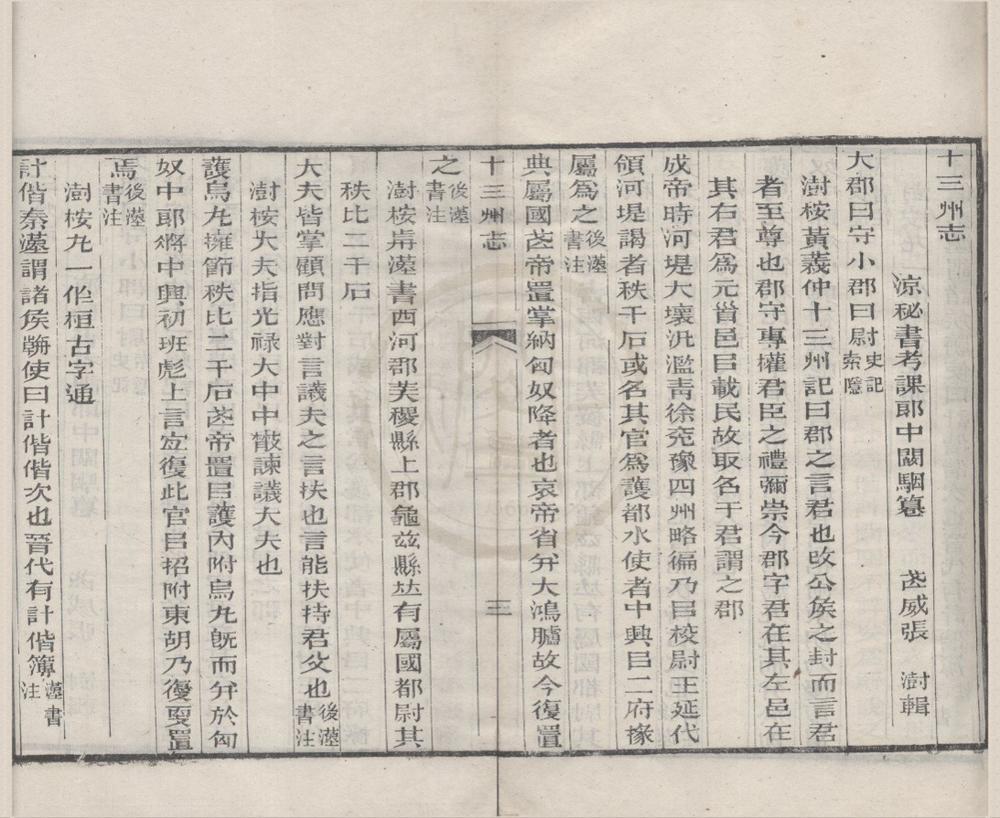 十三州志
涼秘書考課郎中闞駰纂　武威張　澍輯
大郡曰守小郡曰尉史記索隱
澍桉黃義仲十三州記曰郡之言君也改公矦之封而言君
者至尊也郡守專權君臣之禮彌崇今郡字君在其左邑在
其右君爲元𩠐邑㠯載民故取名于君謂之郡
成帝時河堤大壞汎濫靑徐兗豫四州略徧乃㠯校尉王延代
領河堤謁者秩千石或名其官爲護都水使者中興㠯二府掾
屬爲之後漢書注
典屬國武帝置掌納匈奴降者也哀帝省并大鴻臚故今復置
之後漢書注
十三州志
三
澍桉歬漢書西河郡美稷縣上郡龜玆縣竝有屬國都尉其
秩比二千石
大夫皆掌顧問應對言議夫之言扶也言能扶持君父也後漢書注
澍桉大夫指光祿大中中散諫議大夫也
護烏丸擁節秩比二千石武帝置㠯護內附烏丸旣而并於匈
奴中郎將中興初班彪上言宜復此官㠯招附東胡乃復更置
焉後漢書注
澍桉丸一作桓古字通
計偕秦漢謂諸矦朝使曰計偕偕次也晉代有計偕簿漢書注